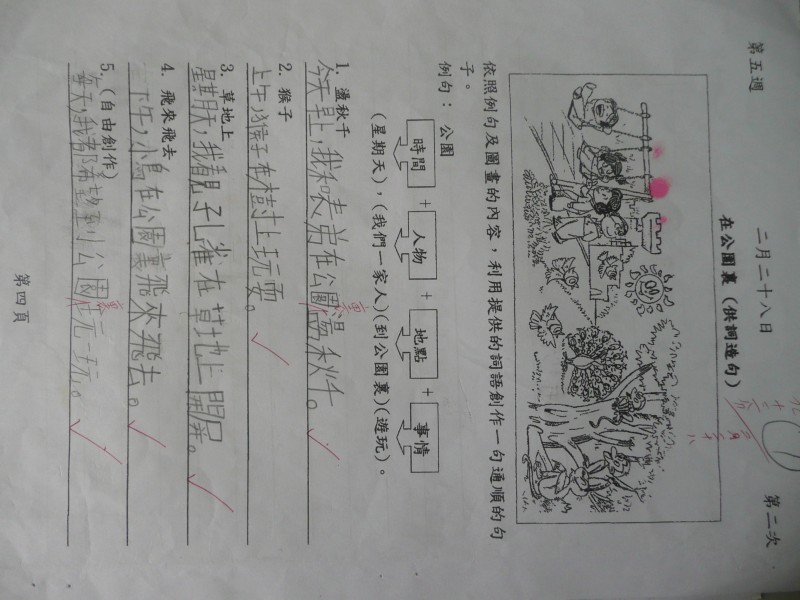 第五週 二月二十八日 第二次
在公園裏（供詞造句）
九十三分
二月二十八
依照例句及圖畫的內容，利用提供的詞語創作一句通順的句
子。
例句： 公園
時間 + 人物 + 地點 + 事情
(星期天)，(我們一家人)(到公園裏)(遊玩)。
1. 盪秋千
今天早上，我和表弟在公園裏盪秋千。
2. 猴子
上午，猴子在樹上玩耍。
3. 草地上
星期天，我看見孔雀在草地上開屏。
4. 飛來飛去
下午，小鳥在公園裏飛來飛去。
5. (自由創作)
每天，我都希望到公園裏玩一玩。
第四頁